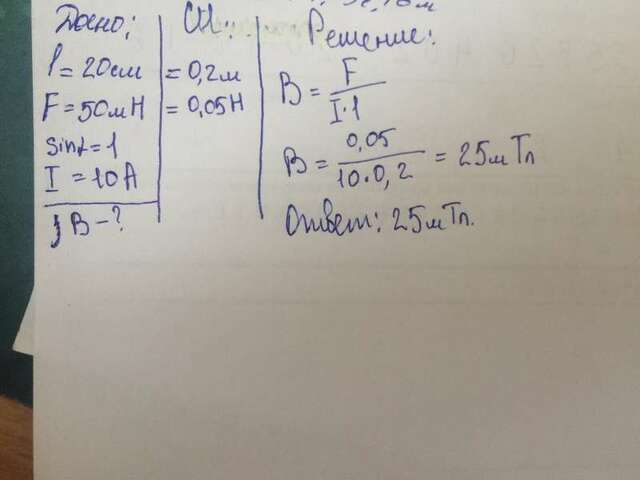 Дано:
l = 20см
F = 50мН
sinα = 1
I = 10А
В - ?
СИ:
= 0,2м
= 0,05Н
Решение:
B = F / I·l
B = 0,05 / 10·0,2 = 25мТл
Ответ: 25мТл.